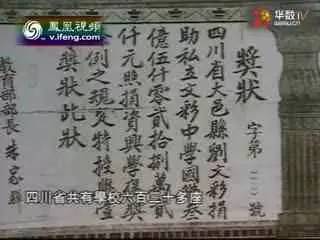 鳳凰視頻
v.ifeng.com
华数TV
獎狀
字第 號
四川省大邑縣劉文彩捐
助私立文彩中學國幣叁
億伍仟零貳拾捌萬貳
仟元照捐資興學
例之規定特授
獎狀此狀
教育部部長 朱家
四川省共有學校六百二十多座